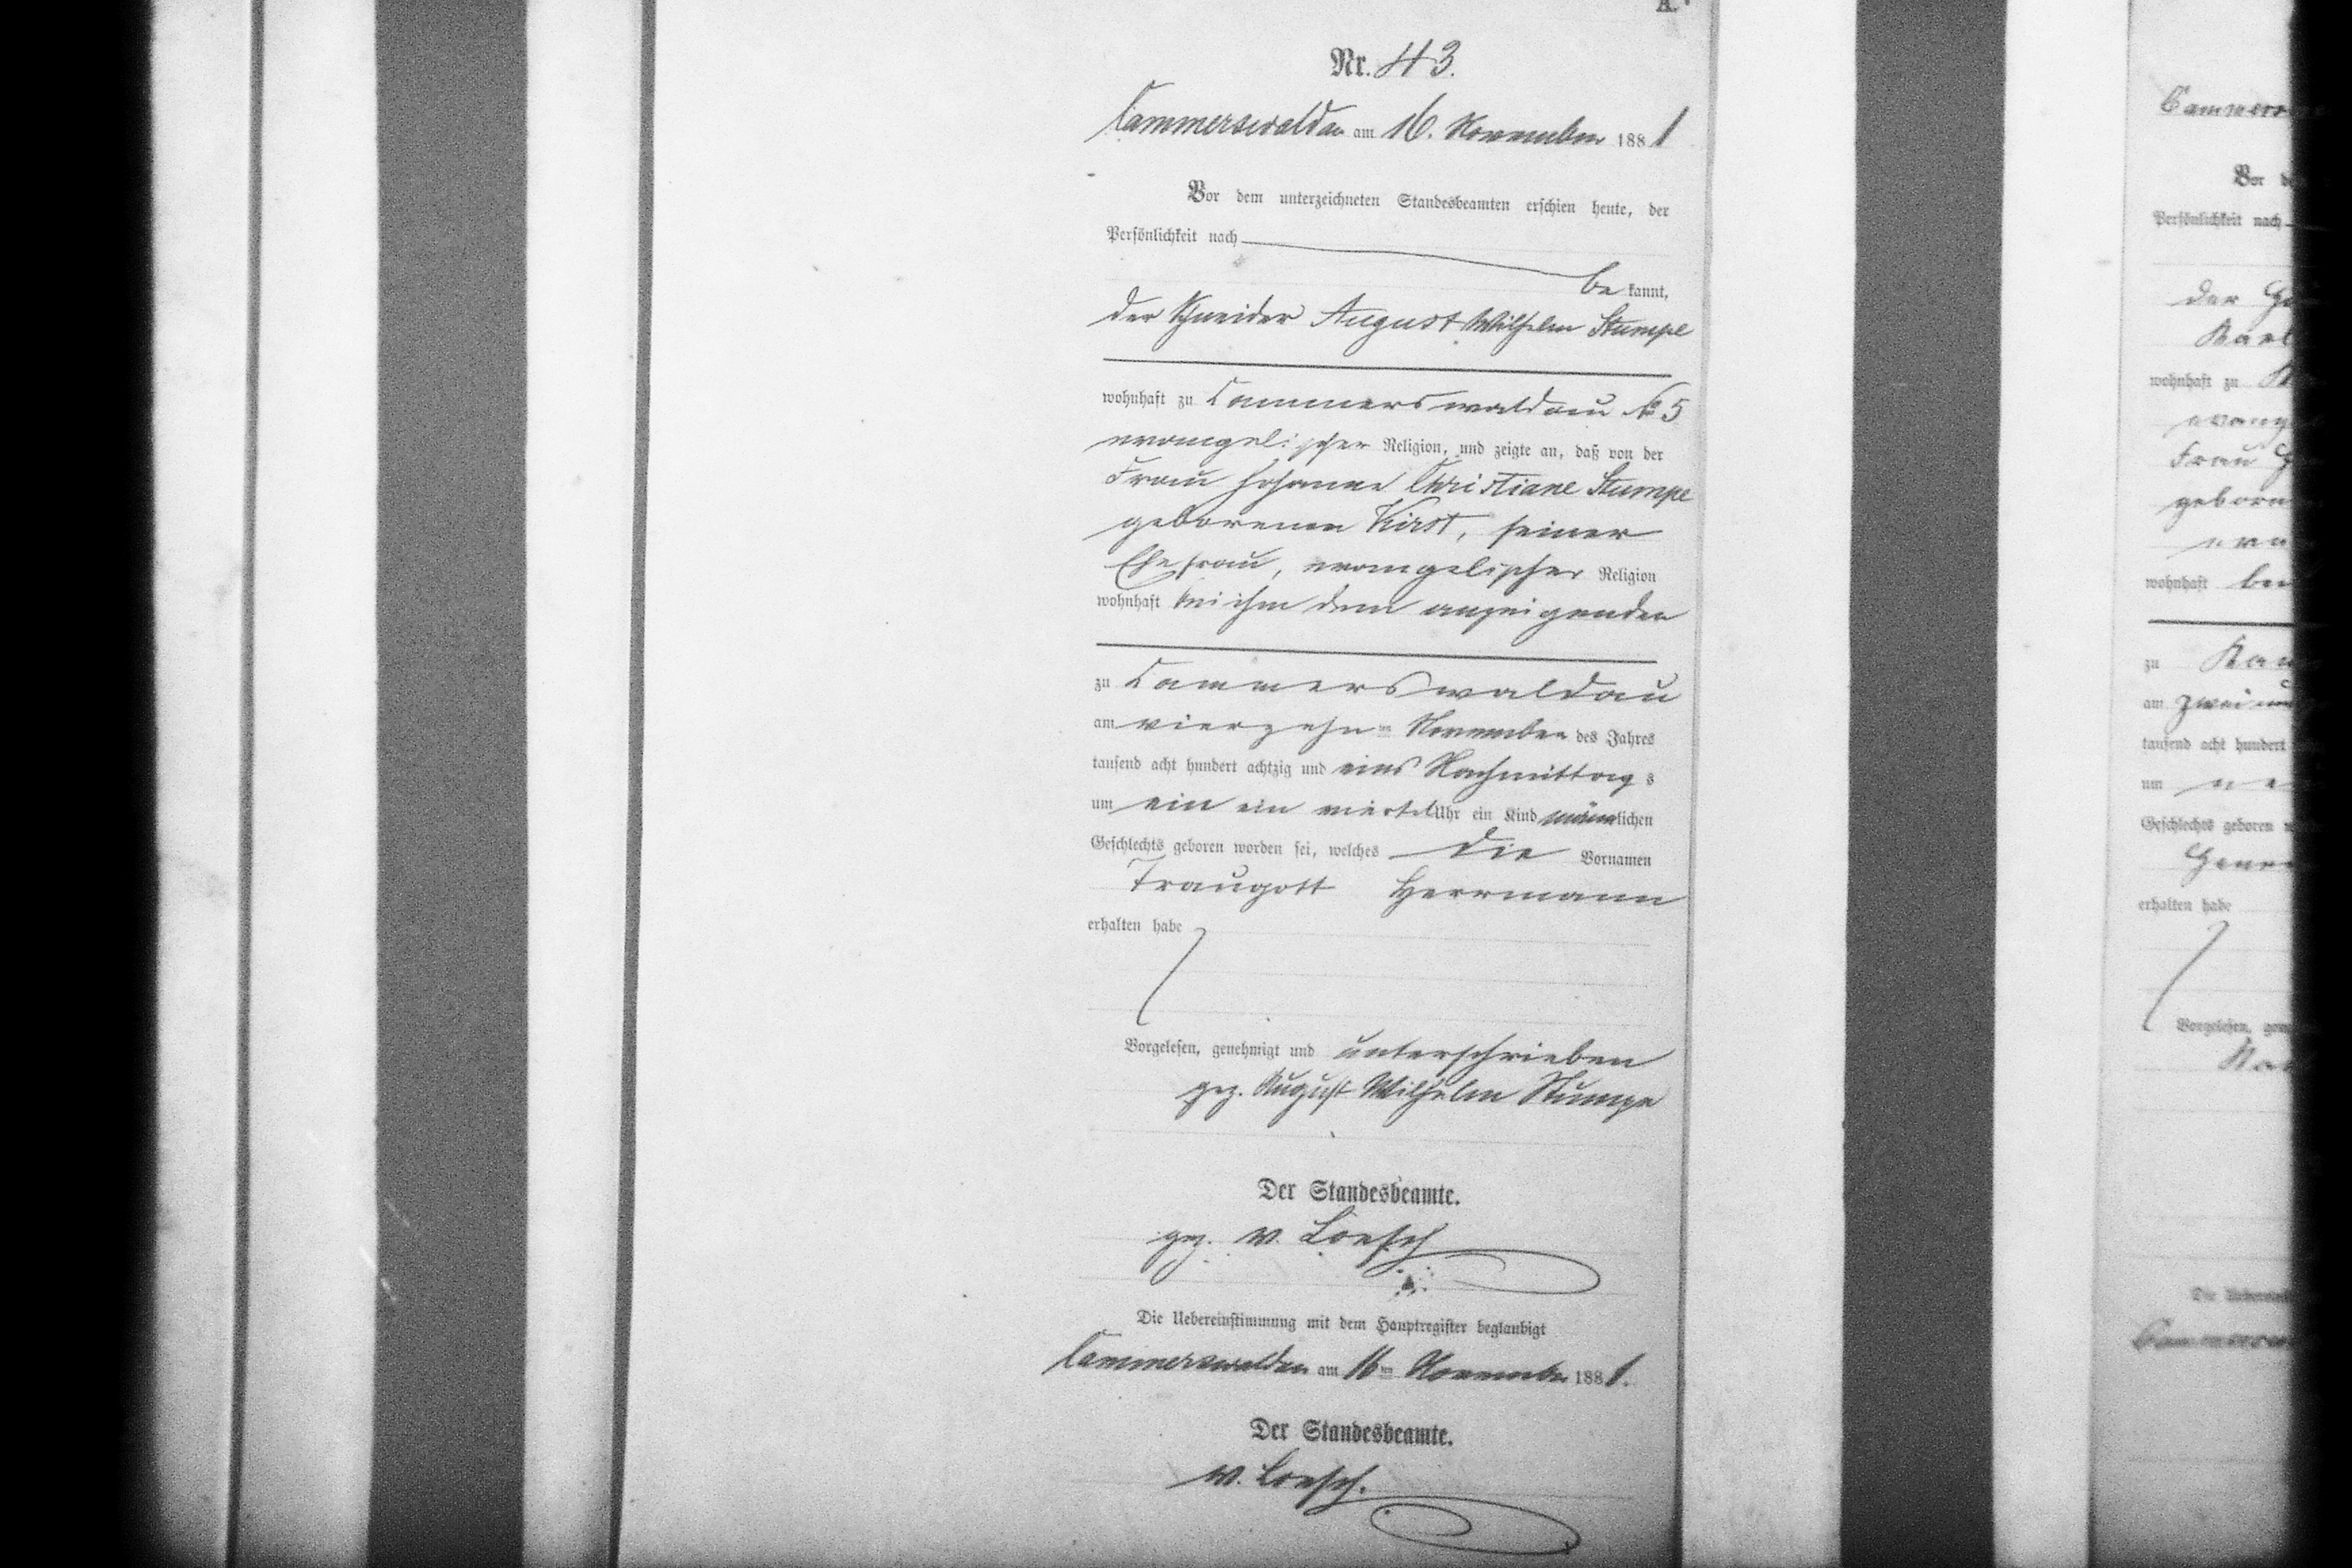 A.
Nr. 43.
Cammerswaldau am 16. November 1881
Vor dem unterzeichneten Standesbeamten erschien heute, der
Persönlichkeit nach
bekannt,
der Schneider August Wilhelm Stumpe
wohnhaft zu Cammerswaldau No 5
evangelischer Religion, und zeigte an, daß von der
Frau Johanne Christiane Stumpe
geborenen Kirst, seiner
Ehefrau, evangelischer Religion
wohnhaft bei ihm dem anzeigenden
zu Cammerswaldau
am vierzehn ten November des Jahres
tausend acht hundert achtzig und eins Nachmittags
um ein ein viertel Uhr ein Kind männlichen
Geschlechts geboren worden sei, welches die Vornamen
Traugott Herrmann
erhalten habe
Vorgelesen, genehmigt und unterschrieben
gez. August Wilhelm Stumpe
Der Standesbeamte.
gez. v. Loesch
Die Uebereinstimmung mit dem Hauptregister beglaubigt
Cammerswaldau am 16ten November 1881.
Der Standesbeamte.
v. Loesch.
Vor
Persönlichkeit nach
der
wohnhaft zu
Frau
wohnhaft
zu
am
tausend acht hundert
um
Geschlechts geboren
erhalten habe
Vorgelesen,
Die